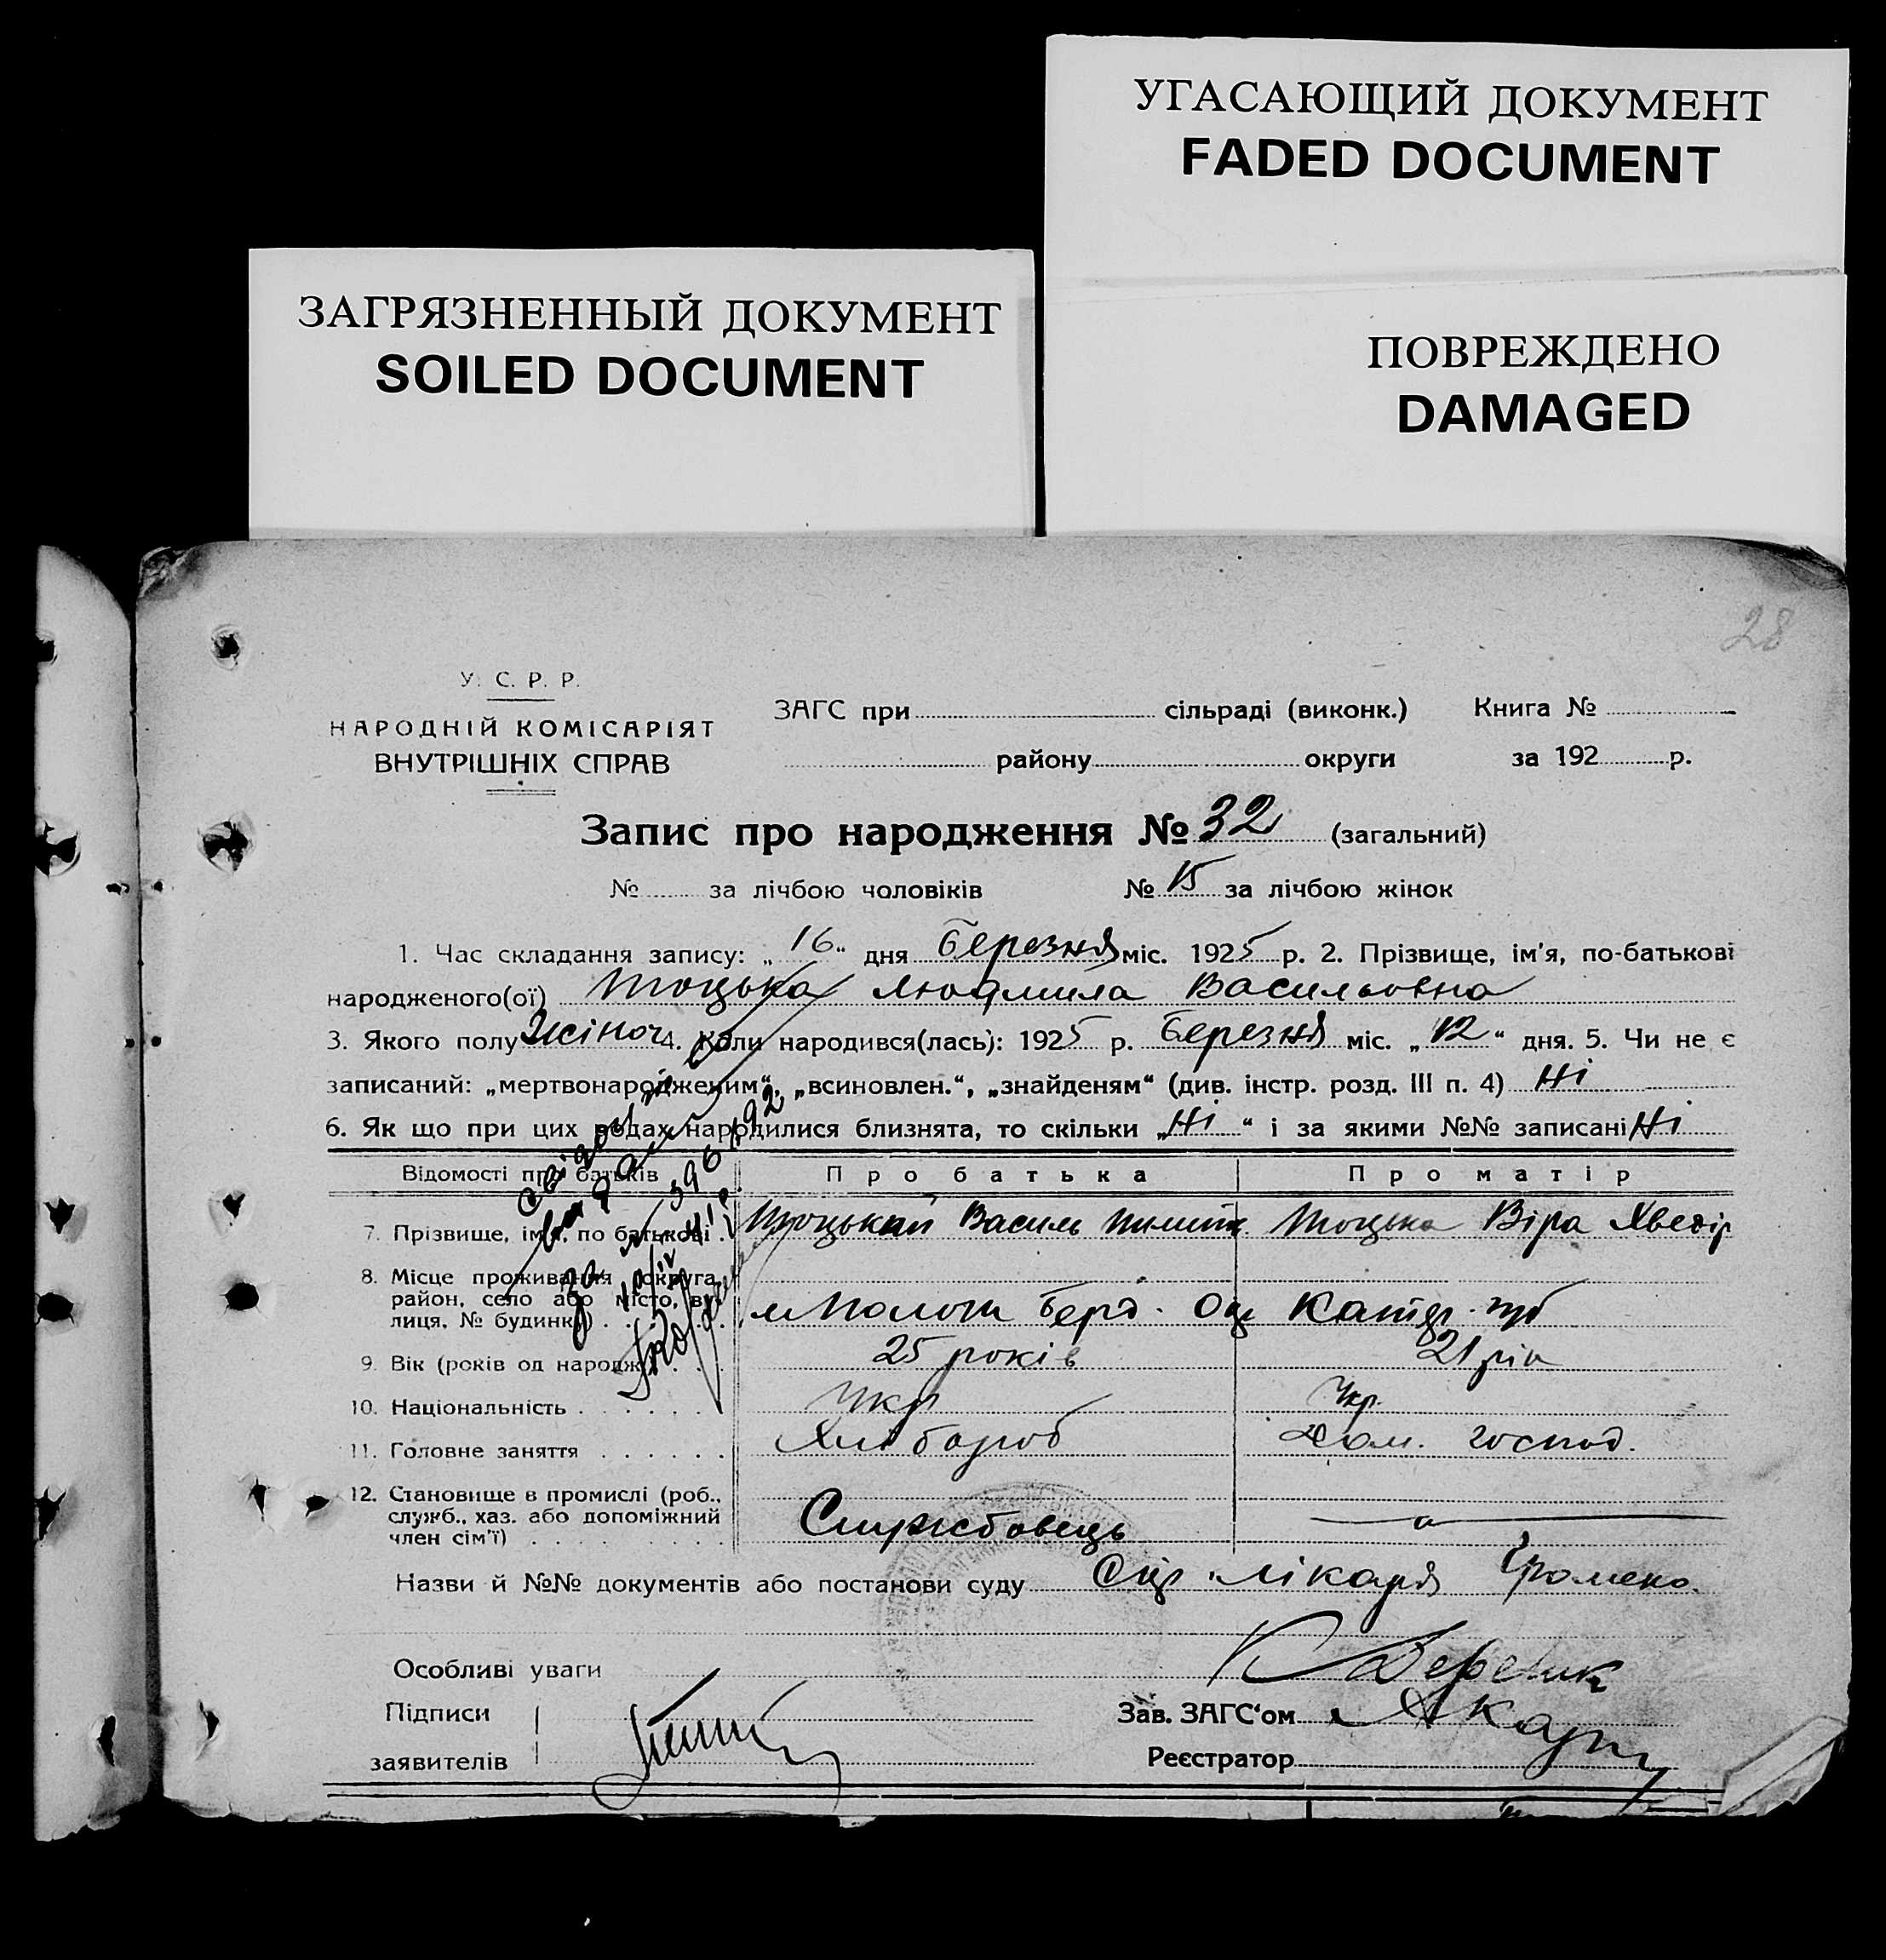 УГАСАЮЩИЙ ДОКУМЕНТ
FADED DOCUMENT
ЗАГРЯЗНЕННЫЙ ДОКУМЕНТ
SOILED DOCUMENT
ПОВРЕЖДЕНО
DAMAGED
28
У. С. Р. Р.
НАРОДНІЙ КОМІСАРІЯТ
ВНУТРІШНІХ СПРАВ
ЗАГС при сільраді (виконк.) Книга №
району округи за 192 р.
Запис про народження № 32 (загальний)
№ за лічбою чоловіків № 15 за лічбою жінок
1. Час складання запису: „16“ дня Березня міс. 1925 р. 2. Прізвище, ім'я, по-батькові
народженого(ої) Тоцька Людмила Васильовна
3. Якого полу Жіноч 4. Коли народився(лась): 1925 р. Березня міс. „12“ дня. 5. Чи не є
записаний: „мертвонародженим“, „всиновлен.“, „знайденям“ (див. інстр. розд. III п. 4) Ні
6. Як що при цих родах народилися близнята, то скільки „Ні“ і за якими №№ записані Ні
Відомості про батьків Про батька Про матір
7. Прізвище, ім'я, по батькові Тоцький Василь Тоцька Віра Хведір
8. Місце проживання округа,
район, село або місто, ву-
лиця, № будинку) Берд. Катер. губ
9. Вік (років од народж.) 25 років 21 рік
10. Національність Укр Укр.
11. Головне заняття Хлібороб Дом. господ.
12. Становище в промислі (роб.,
служб., хаз. або допоміжний
член сім'ї) Службовець
Назви й №№ документів або постанови суду лікаря
Особливі уваги
Підписи Зав. ЗАГС'ом
заявителів Реєстратор